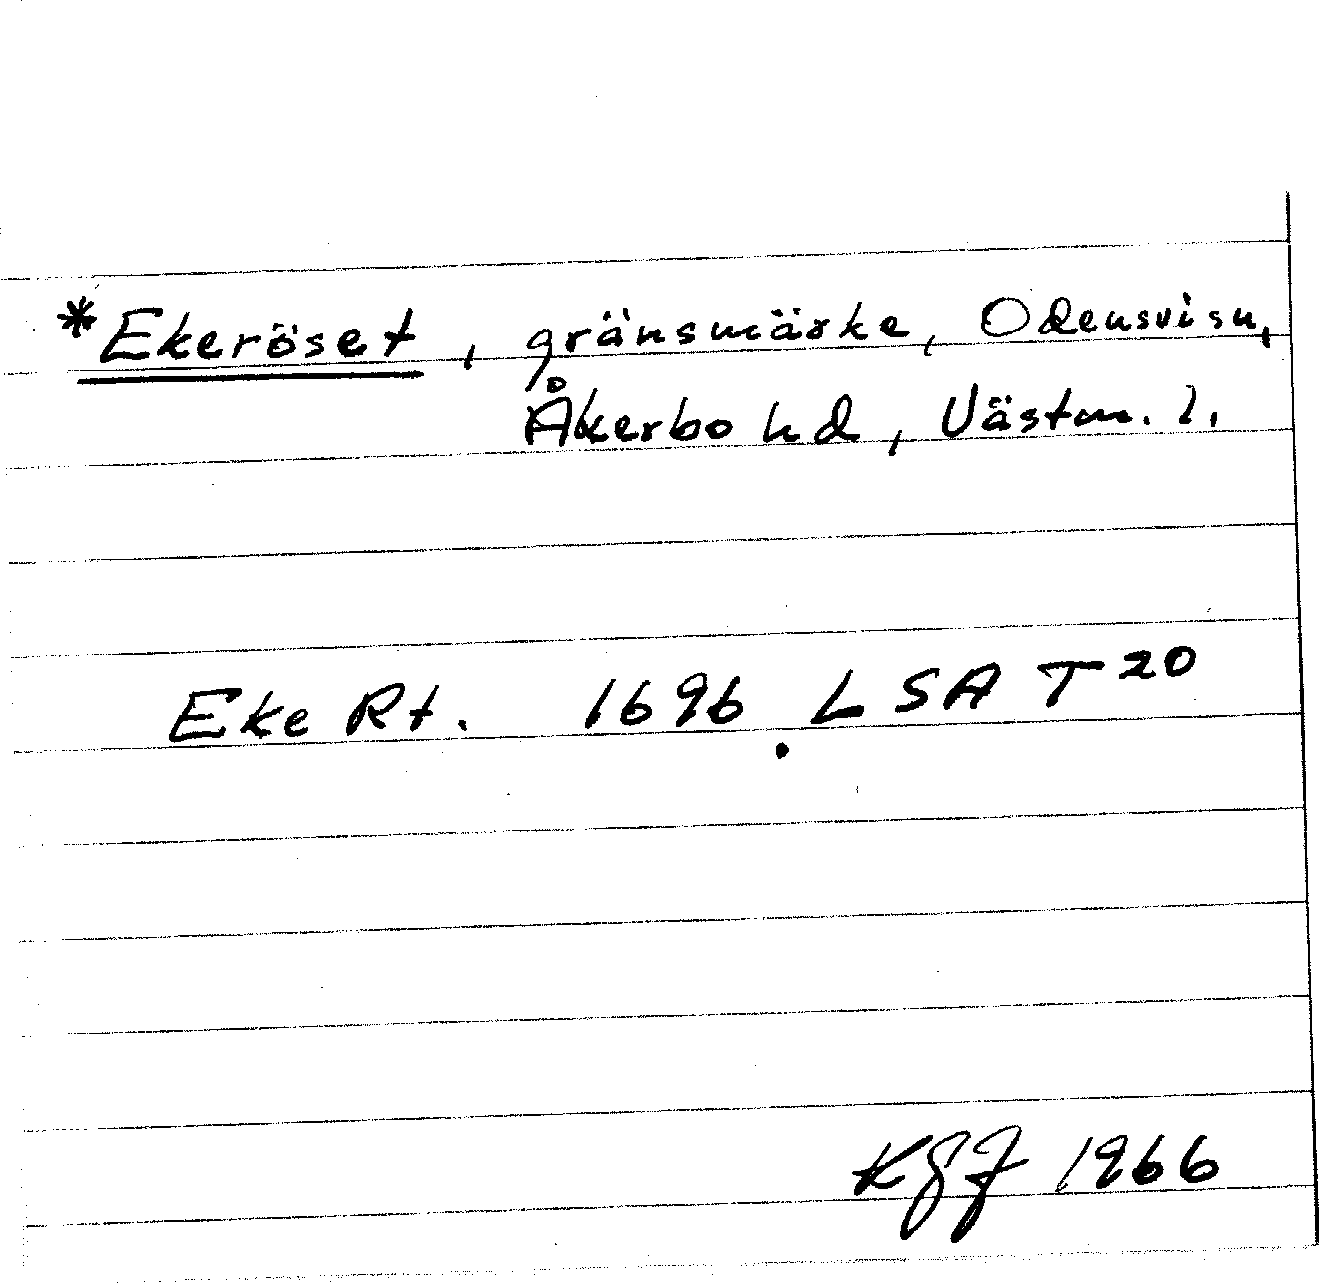 *Ekeröset, gränsmärke, Odensvi sn,
Åkerbo hd, Västm. l.
Eke Rt. 1696. LSA T 20
KGF 1966